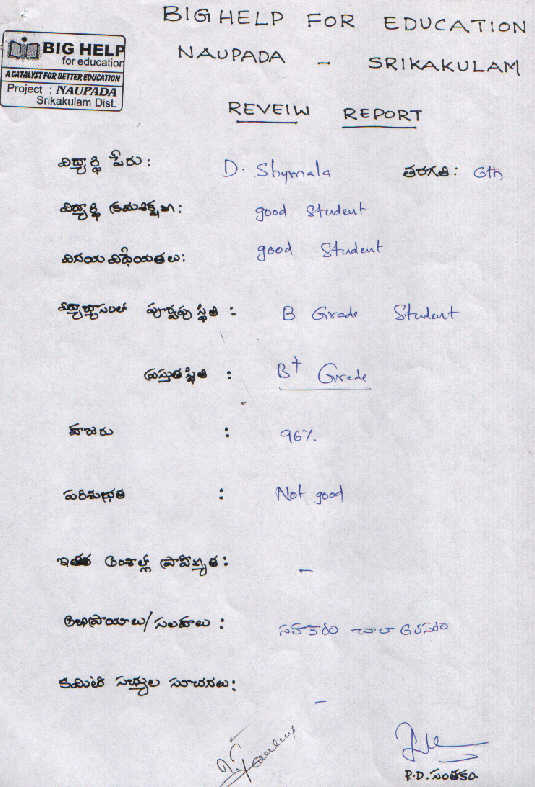 BIG HELP FOR EDUCATION
BIG HELP
for education
A CATALYST FOR BETTER EDUCATION
Project : NAUPADA
Srikakulam Dist.
NAUPADA - SRIKAKULAM
REVEIW REPORT
విద్యార్థి పేరు: D. Shymala తరగతి: 6th
విద్యార్థి క్రమశిక్షణ: good Student
వినయ విధేయతలు: good Student
విద్యాభ్యాసంలో పూర్వపు స్థితి : B Grade Student
ప్రస్తుత స్థితి : B+ Grade
హాజరు : 96%
పరిశుభ్రత : Not good
ఇతర అంశాల్లో ప్రావీణ్యత: -
అభిప్రాయాలు/సలహాలు : సహకారం చాలా అవసరం
కమిటి సభ్యుల సూచనలు: -
P.D. సంతకం